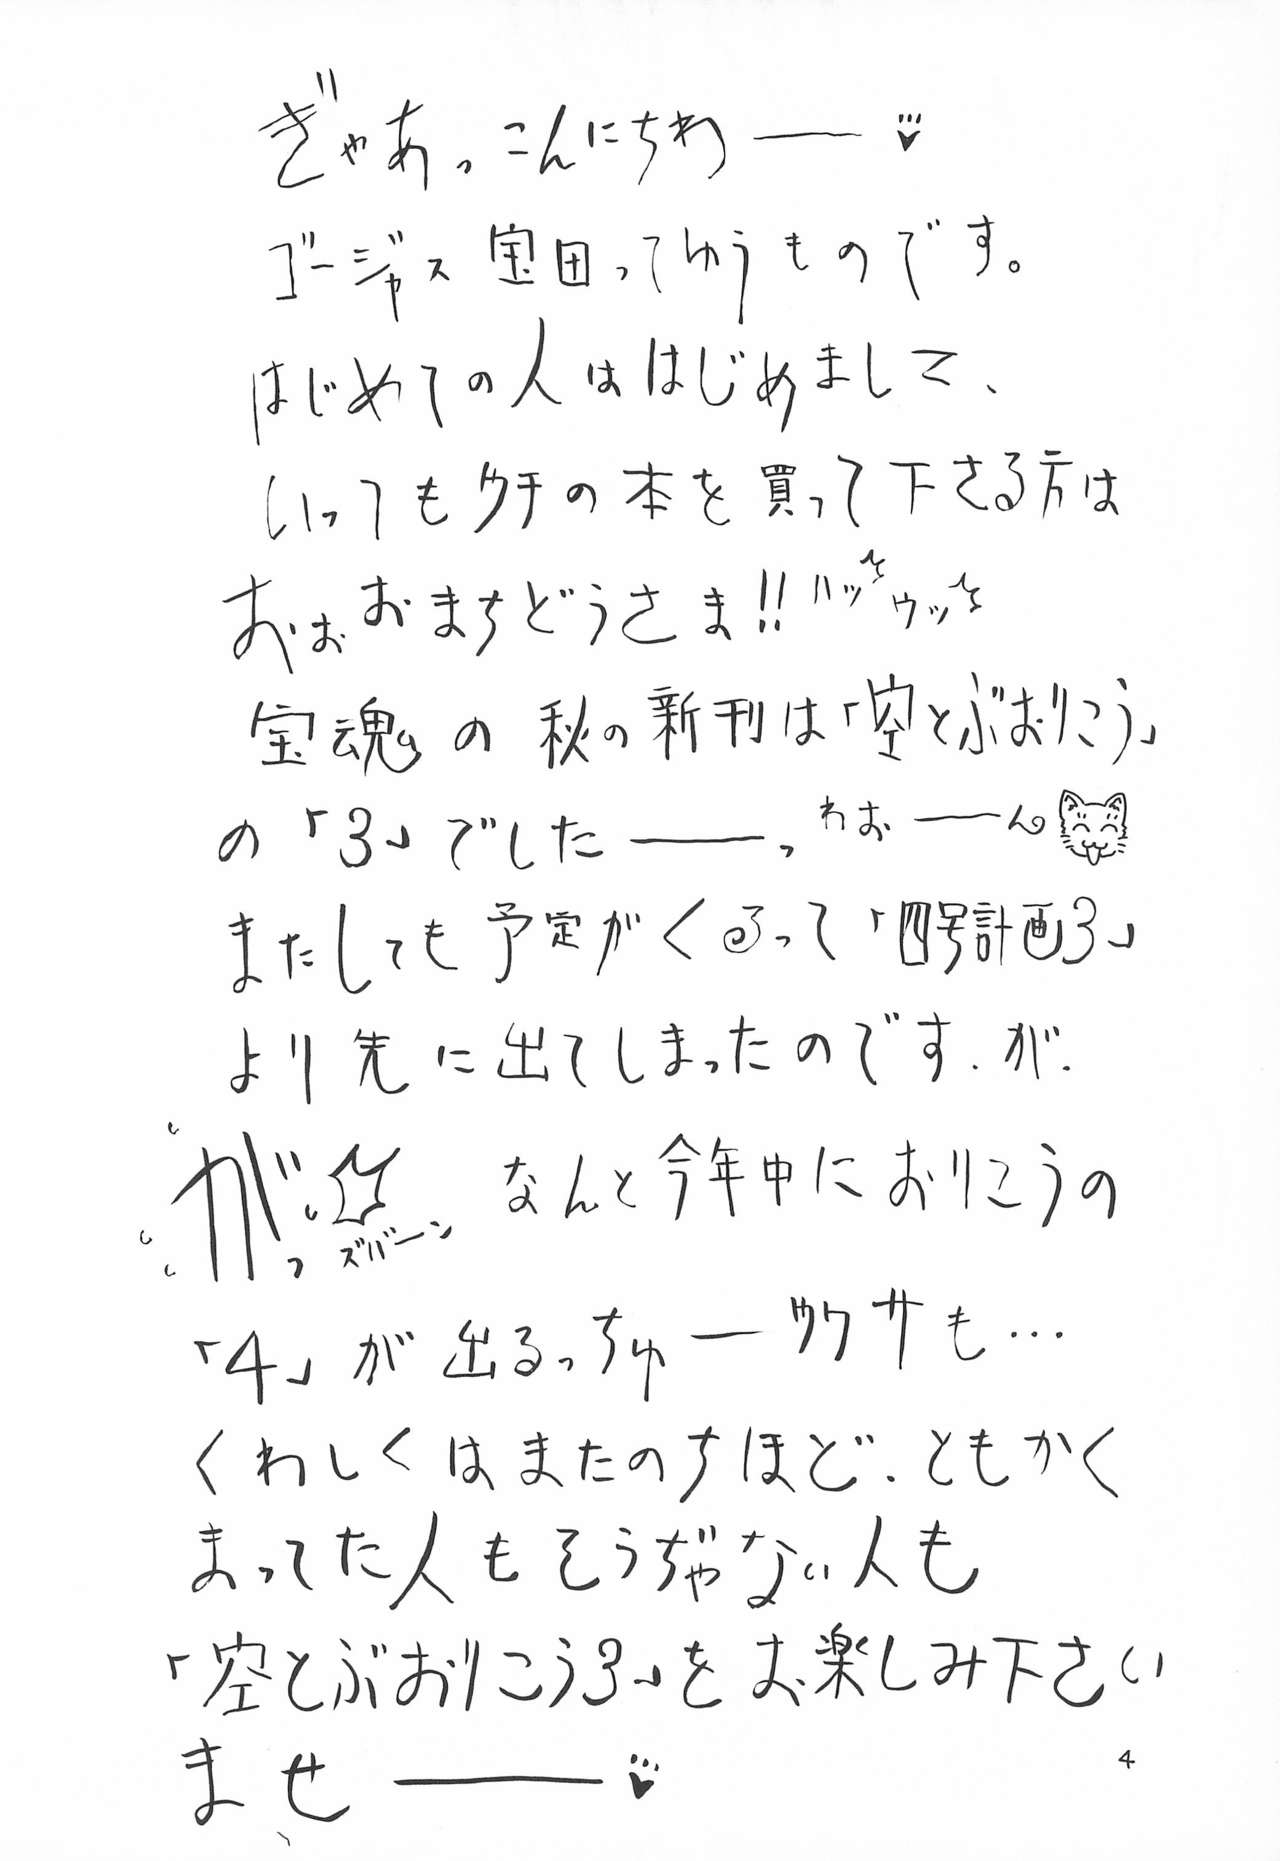 ぎゃあっこんにちわ――♥
ゴージャス宝田ってゆうものです。
はじめての人ははじめまして、
いっつもウチの本を買って下さる方は
おぉおまちどうさま!!ハッウッ
宝魂の秋の新刊は「空とぶおりこう」
の「3」でした――、わお――ん
またしても予定がくるって「四号計画3」
より先に出てしまったのです.が.
がっズバーンなんと今年中におりこうの
「4」が出るっちゅーウワサも…
くわしくはまたのちほど.ともかく
まってた人もそうぢゃない人も
「空とぶおりこう3」をお楽しみ下さい
ませ――♥
4